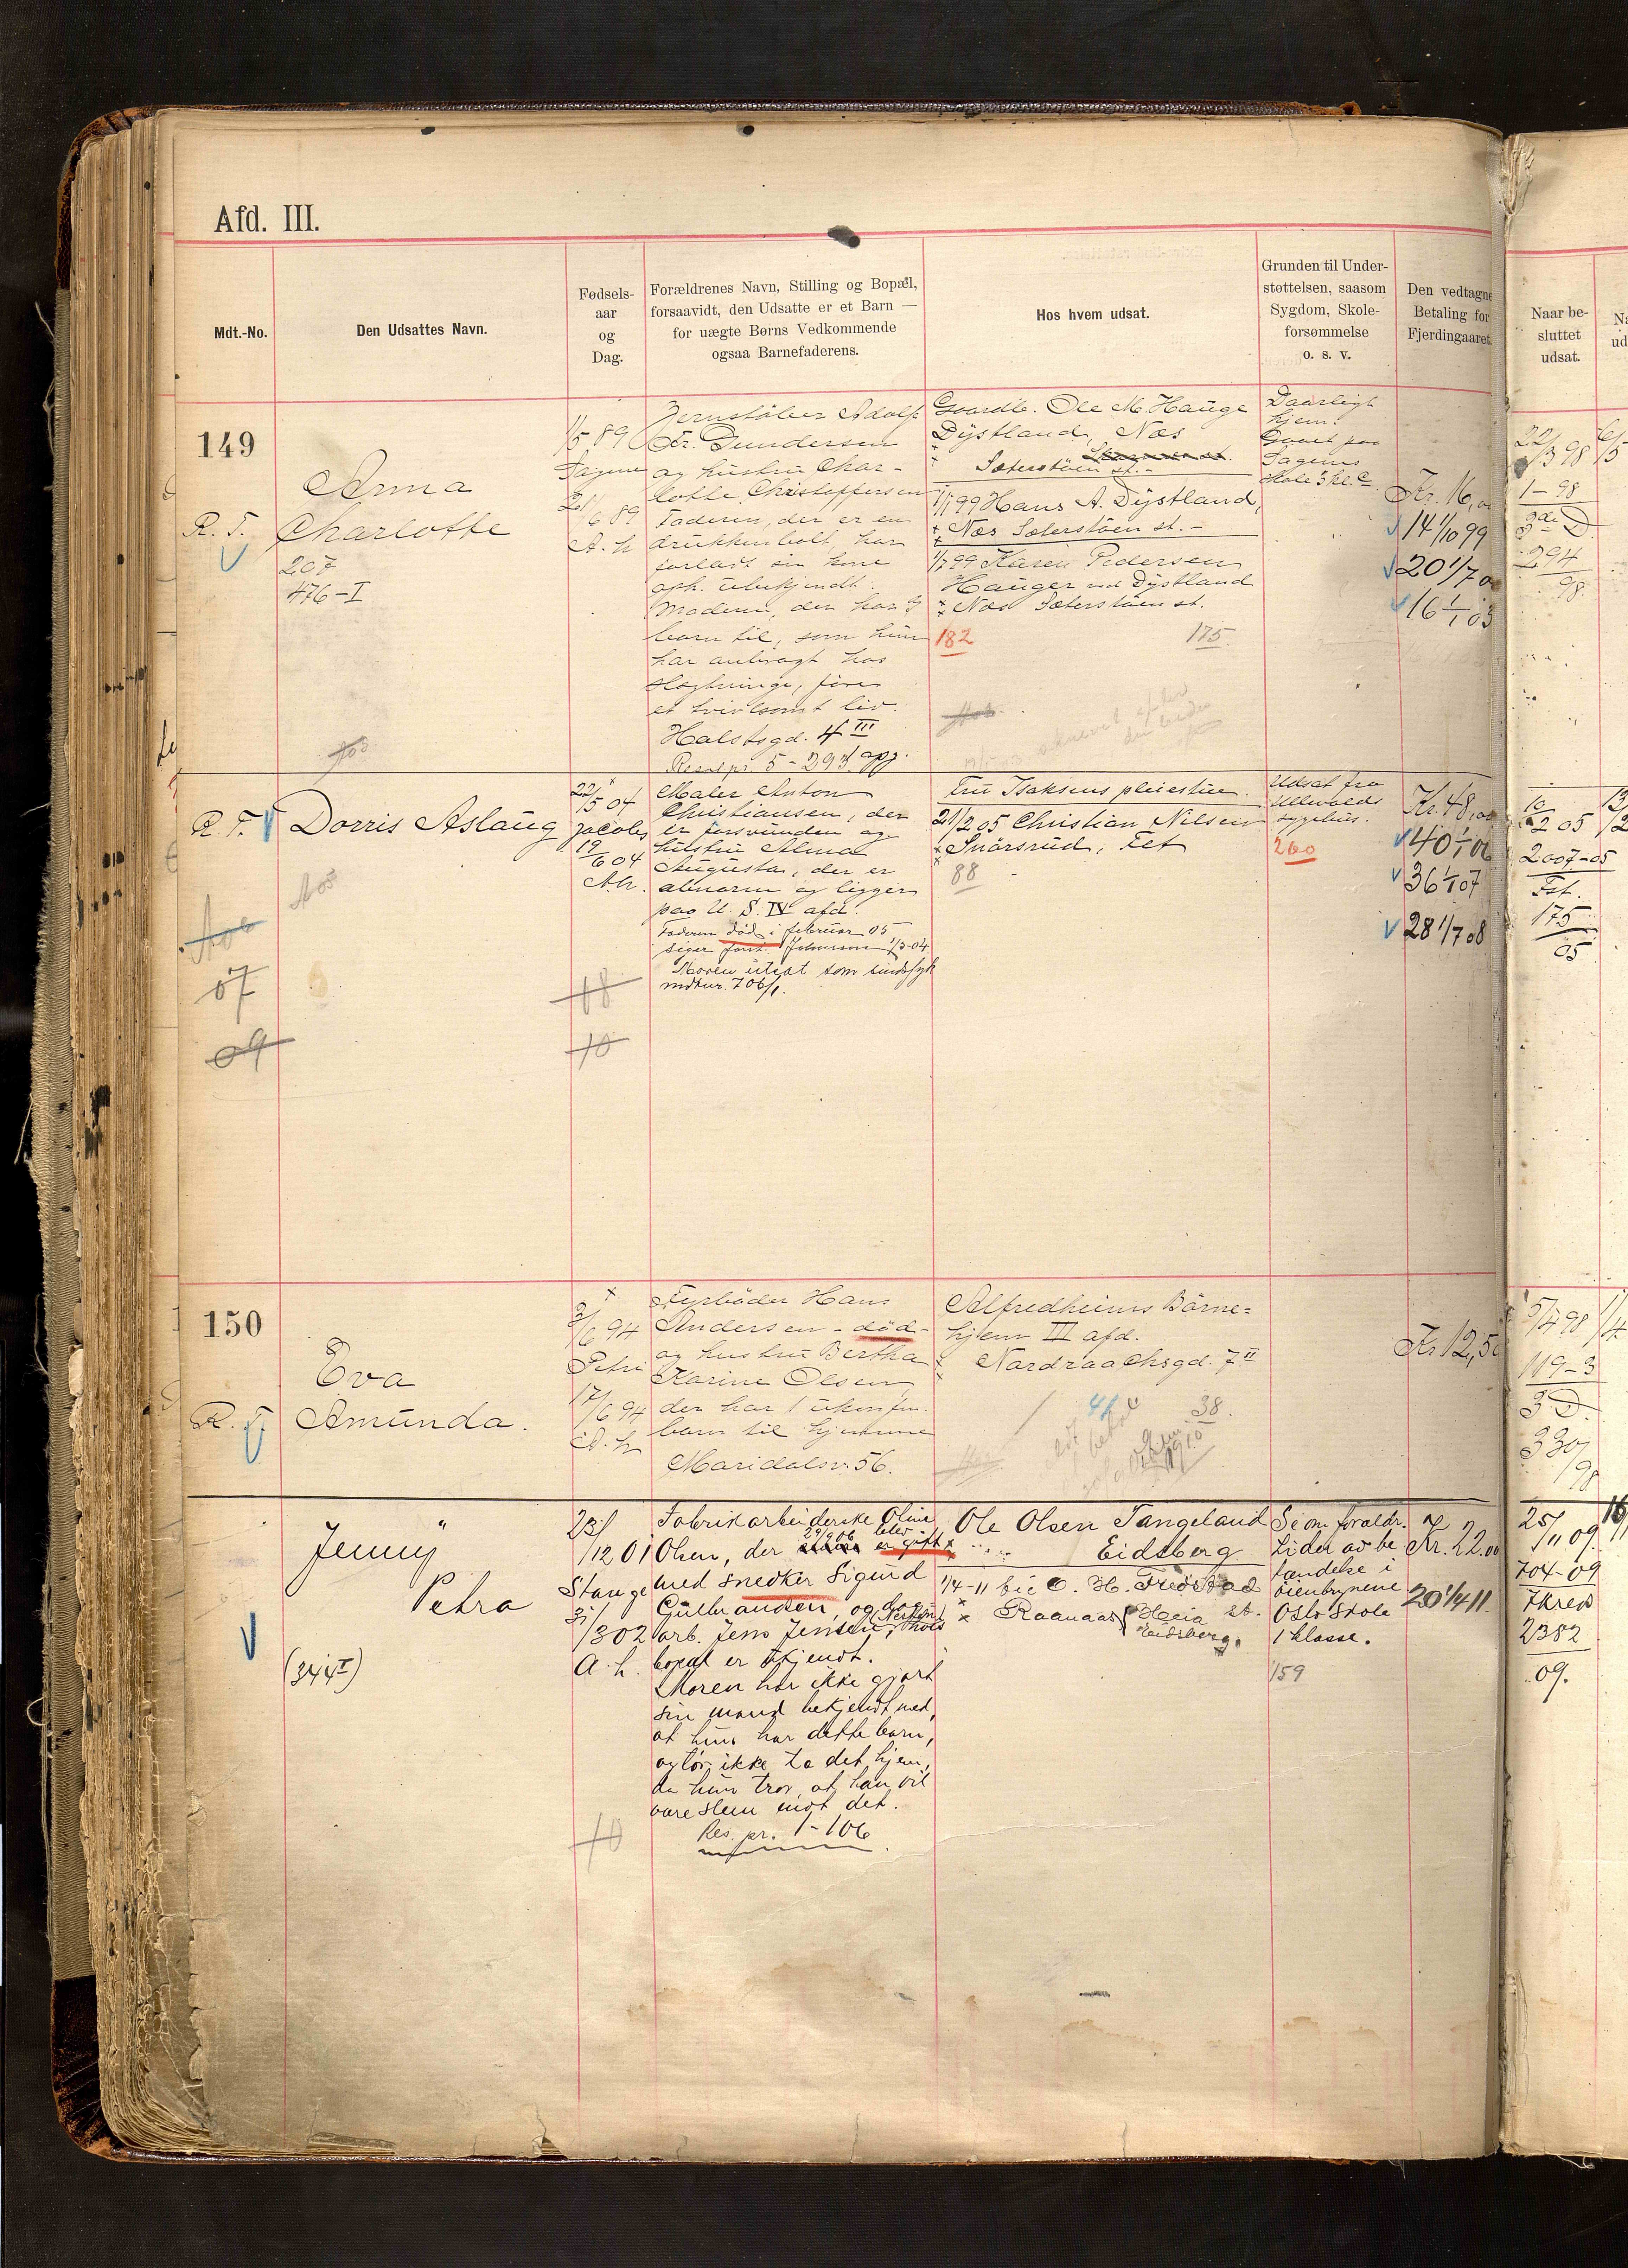 Afd. III.
Mdt.-No.
Den Udsattes Navn.
Fødsels-
aar
og
Dag.
Forældrenes Navn, Stilling og Bopæl,
forsaavidt, den Udsatte er et Barn —
for uægte Børns Vedkommende
ogsaa Barnefaderens.
Hos hvem udsat.
Grunden til Under-
støttelsen, saasom
Sygdom, Skole-
forsømmelse
o. s. v.
Den vedtagne
Betaling for
Fjerdingaaret.
Naar be-
sluttet
udsat.
149
R. F.
Anna
Charlotte
207
476-I
1/5 89
Sagene
2/6 89
A. h
Jernstöber Adolf
Fr. Gundersen
og hustru Char-
lotte Christoffersen
Faderen, der er en
drukkenbolt, har
forladt sin kone
oph. ubekjendt.
Moderen, der har
barn til, som hun
har anbragt hos
slægtninge, fører
et tvivlsomt liv.
Halstsgd. 4 III
Resolpr. 5-293
Gaardb. Ole M. Hauge
Dÿstland, Næs
Sæterstöen st.-
1/1 99 Hans A. Dÿstland,
Næs Sæterstöen st.-
1/7 99 Karen Pedersen
Hauger ved Dÿstland
Næs Sæterstöen st.
182
175
Daarligt
hjem.
Gaaet paa
Sagens
skole 3 kl. C
Kr. 16,00
14 1/10 99
20 1/7 0
16 1/1 03
22/3 98
1-98
3de D
294
98.
R. F.
Dorris Aslaug
22/5 04
Jacobs
19/6 04
A.h.
Maler Anton
Christiansen, der
er forsvunden og
hustru Alma
Augusta, der er
abnorm og ligger
paa U. S. IV afd.
Faderen död i februar 05
siger forst. Johnsson 1/3-04
Moren utsat som sindssyk
mdtnr. 706/1.
Fru Isaksens pleiestue.
21/2 05 Christian Nilsen
Snörsrud, Fet
88
Udsat fra
Ullevolds
sygehus.
260
Kr. 48,00
40 1/1 06
36 1/1 07
28 1/7 08
10/2 05
2007-05
Fst.
175
05
07
09
08
10
150
R. F.
Eva
Amunda.
3/6 94
Petri
17/6 94
A. h
Fyrböder Hans
Andersen - död -
og hustru Bertha
Karine Olsen,
der har 1 ukonfm.
barn til hjemme
Maridalsv. 56.
Alfredheims Börne-
hjem III afd.
Nordraachsgd. 7 II
41
38.
Kr 12,50
5/4 98
119-3
3 D.
330/98
Jenny
Petra
(344 I)
23/12 01
Stange
3/3 02
a. h.
Fabrikarbeiderske Oline
29/9 06 blev
Olsen, der er gift
med snedker Sigurd
Gulbrandsen, og
arb. Jens Jensen, hvis
bopæl er ukjendt.
Moren har ikke gjort
sin mand bekjendt med,
at hun har dette barn,
og tör ikke ta det hjem,
da hun tror, at han vil
være slem mot det.
Res. pr. 1-106
10
Ole Olsen Tangeland
Eidsberg
1/4-11 til O. H. Fredstad
Raanaas, Heia st.
Eidsberg.
Se om foreldr.
Lider av be
tændelse i
öienbrynene
Oslo Skole
1 klasse.
159
Kr. 22.00
20 1/4 11.
25/11 09.
704-09
7 kreds
2382
09.